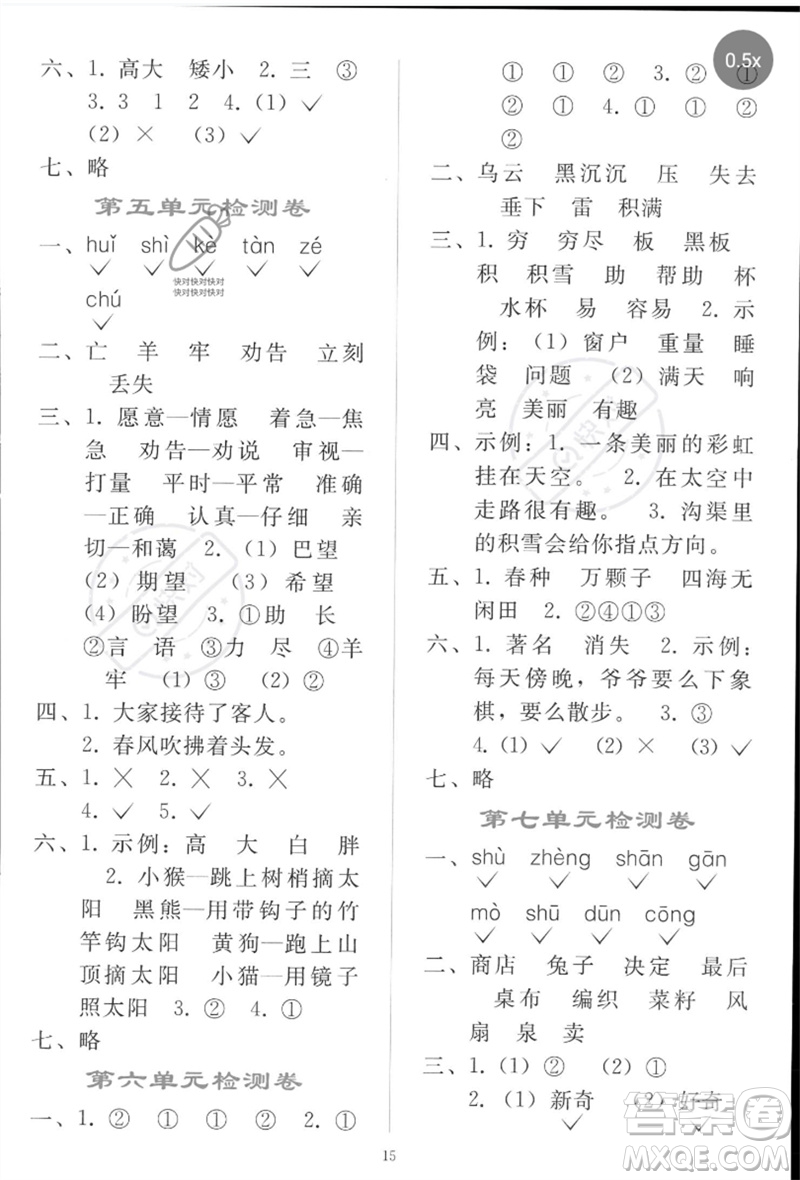 六、1. 高大 矮小 2. 三 ③
3. 3 1 2 4.（1）✓
（2）× （3）✓
七、略
第五单元检测卷
一、huǐ shì kè tàn zé
✓ ✓ ✓ ✓ ✓
快对快对快对
快对快对快对
chú
✓
二、亡 羊 牢 劝告 立刻
丢失
三、1. 愿意—情愿 着急—焦
急 劝告—劝说 审视—
打量 平时—平常 准确
—正确 认真—仔细 亲
切—和蔼 2.（1）巴望
（2）期望 （3）希望
（4）盼望 3. ①助 长
②言 语 ③力 尽 ④羊
牢 （1）③ （2）②
四、1. 大家接待了客人。
2. 春风吹拂着头发。
五、1. × 2. × 3. ×
4. ✓ 5. ✓
六、1. 示例：高 大 白 胖
2. 小猴—跳上树梢摘太
阳 黑熊—用带钩子的竹
竿钩太阳 黄狗—跑上山
顶摘太阳 小猫—用镜子
照太阳 3. ② 4. ①
七、略
第六单元检测卷
一、1. ② ① ① ② 2. ①
0.5x
① ① ② 3. ② ①
② ② 4. ① ① ② ②
②
二、乌云 黑沉沉 压 失去
垂下 雷 积满
三、1. 穷 穷尽 板 黑板
积 积雪 助 帮助 杯
水杯 易 容易 2. 示
例：（1）窗户 重量 睡
袋 问题 （2）满天 响
亮 美丽 有趣
四、示例：1. 一条美丽的彩虹
挂在天空。 2. 在太空中
走路很有趣。 3. 沟渠里
的积雪会给你指点方向。
五、1. 春种 万颗子 四海无
闲田 2. ②④①③
六、1. 著名 消失 2. 示例：
每天傍晚，爷爷要么下象
棋，要么散步。 3. ③
4.（1）✓ （2）× （3）✓
七、略
第七单元检测卷
一、shù zhèng shān gān
✓ ✓ ✓ ✓
mò shū dūn cōng
✓ ✓ ✓ ✓
二、商店 兔子 决定 最后
桌布 编织 菜籽 风
扇 泉 卖
三、1.（1）② （2）①
2.（1）新奇 （2）好奇
✓ ✓
15
答案卷
MXQE.COM